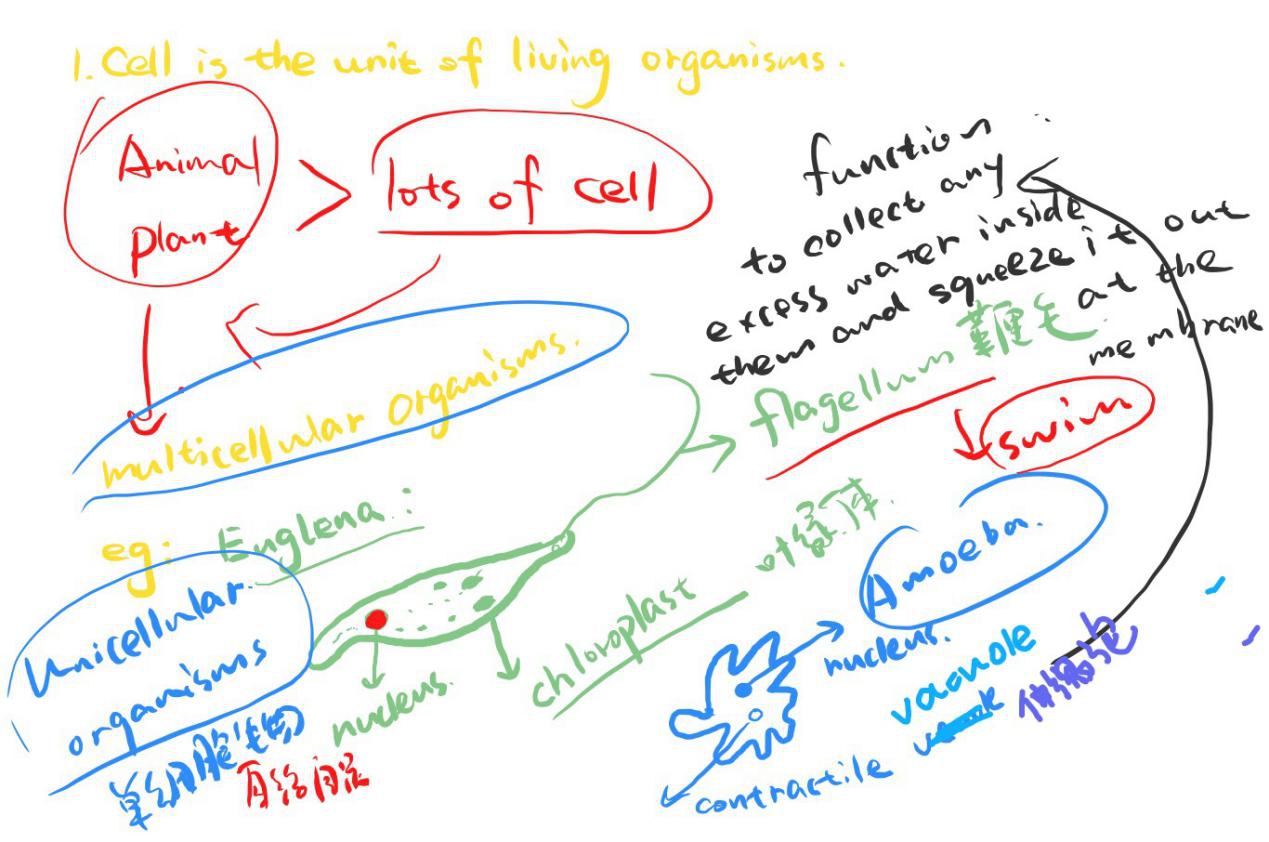 1. Cell is the unit of living organisms.
Animal
plant
>
lots of cell
multicellular organisms.
function:
to collect any
excess water inside
them and squeeze it out
at the
membrane
flagellum
swim
eg: Euglena:
Unicellular
organisms
單細胞生物
nucleus.
chloroplast 叶綠体
Amoeba.
nucleus.
vacuole
contractile
伸縮泡